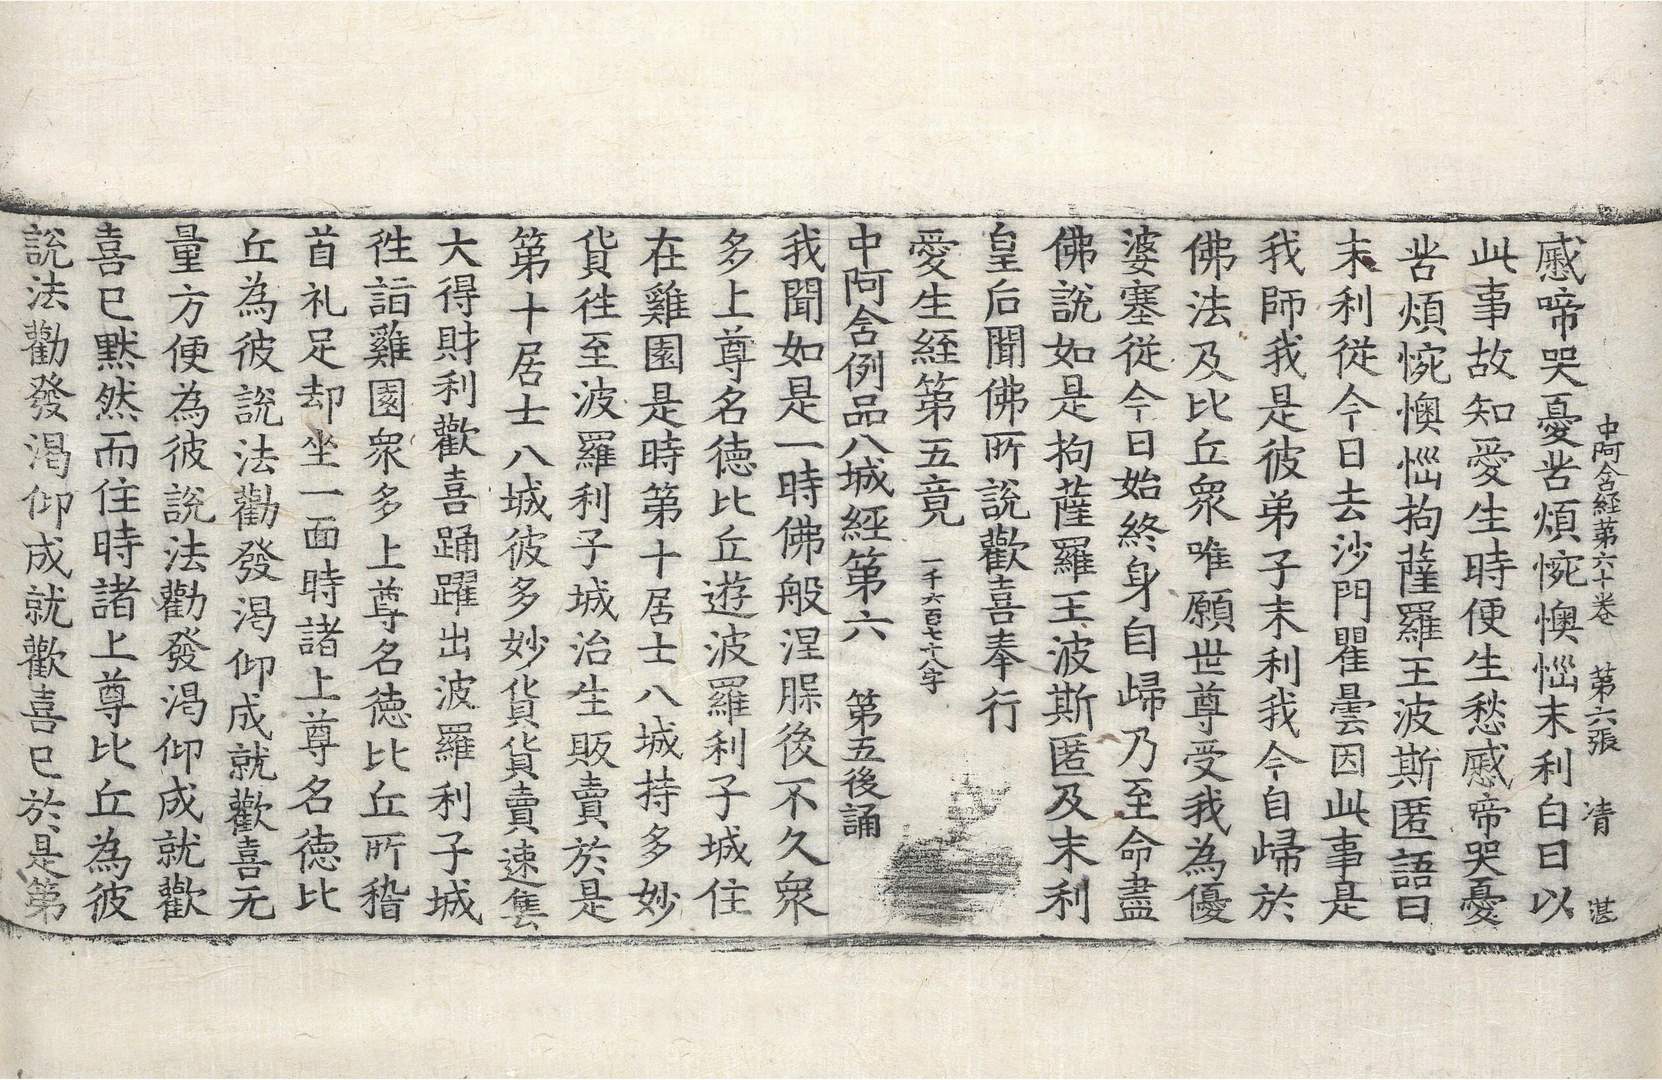 中阿含経苐六十卷 第六張 清 湛
慼啼哭憂苦煩惋懊惱末利白曰以
此事故知愛生時便生愁慼啼哭憂
苦煩惋懊惱拘薩羅王波斯匿語曰
末利從今日去沙門瞿曇因此事是
我師我是彼弟子末利我今自歸於
佛法及比丘衆唯願世尊受我為優
婆塞從今日始終身自歸乃至命盡
佛說如是拘薩羅王波斯匿及末利
皇后聞佛所說歡喜奉行
愛生經第五竟 一千六百七十八字
中阿含例品八城經第六 第五後誦
我聞如是一時佛般涅槃後不久衆
多上尊名德比丘遊波羅利子城住
在雞園是時第十居士八城持多妙
貨往至波羅利子城治生販賣於是
第十居士八城彼多妙貨貨賣速售
大得財利歡喜踊躍出波羅利子城
往詣雞園衆多上尊名德比丘所稽
首礼足却坐一面時諸上尊名德比
丘為彼說法勸發渴仰成就歡喜无
量方便為彼說法勸發渴仰成就歡
喜已黙然而住時諸上尊比丘為彼
說法勸發渴仰成就歡喜已於是第